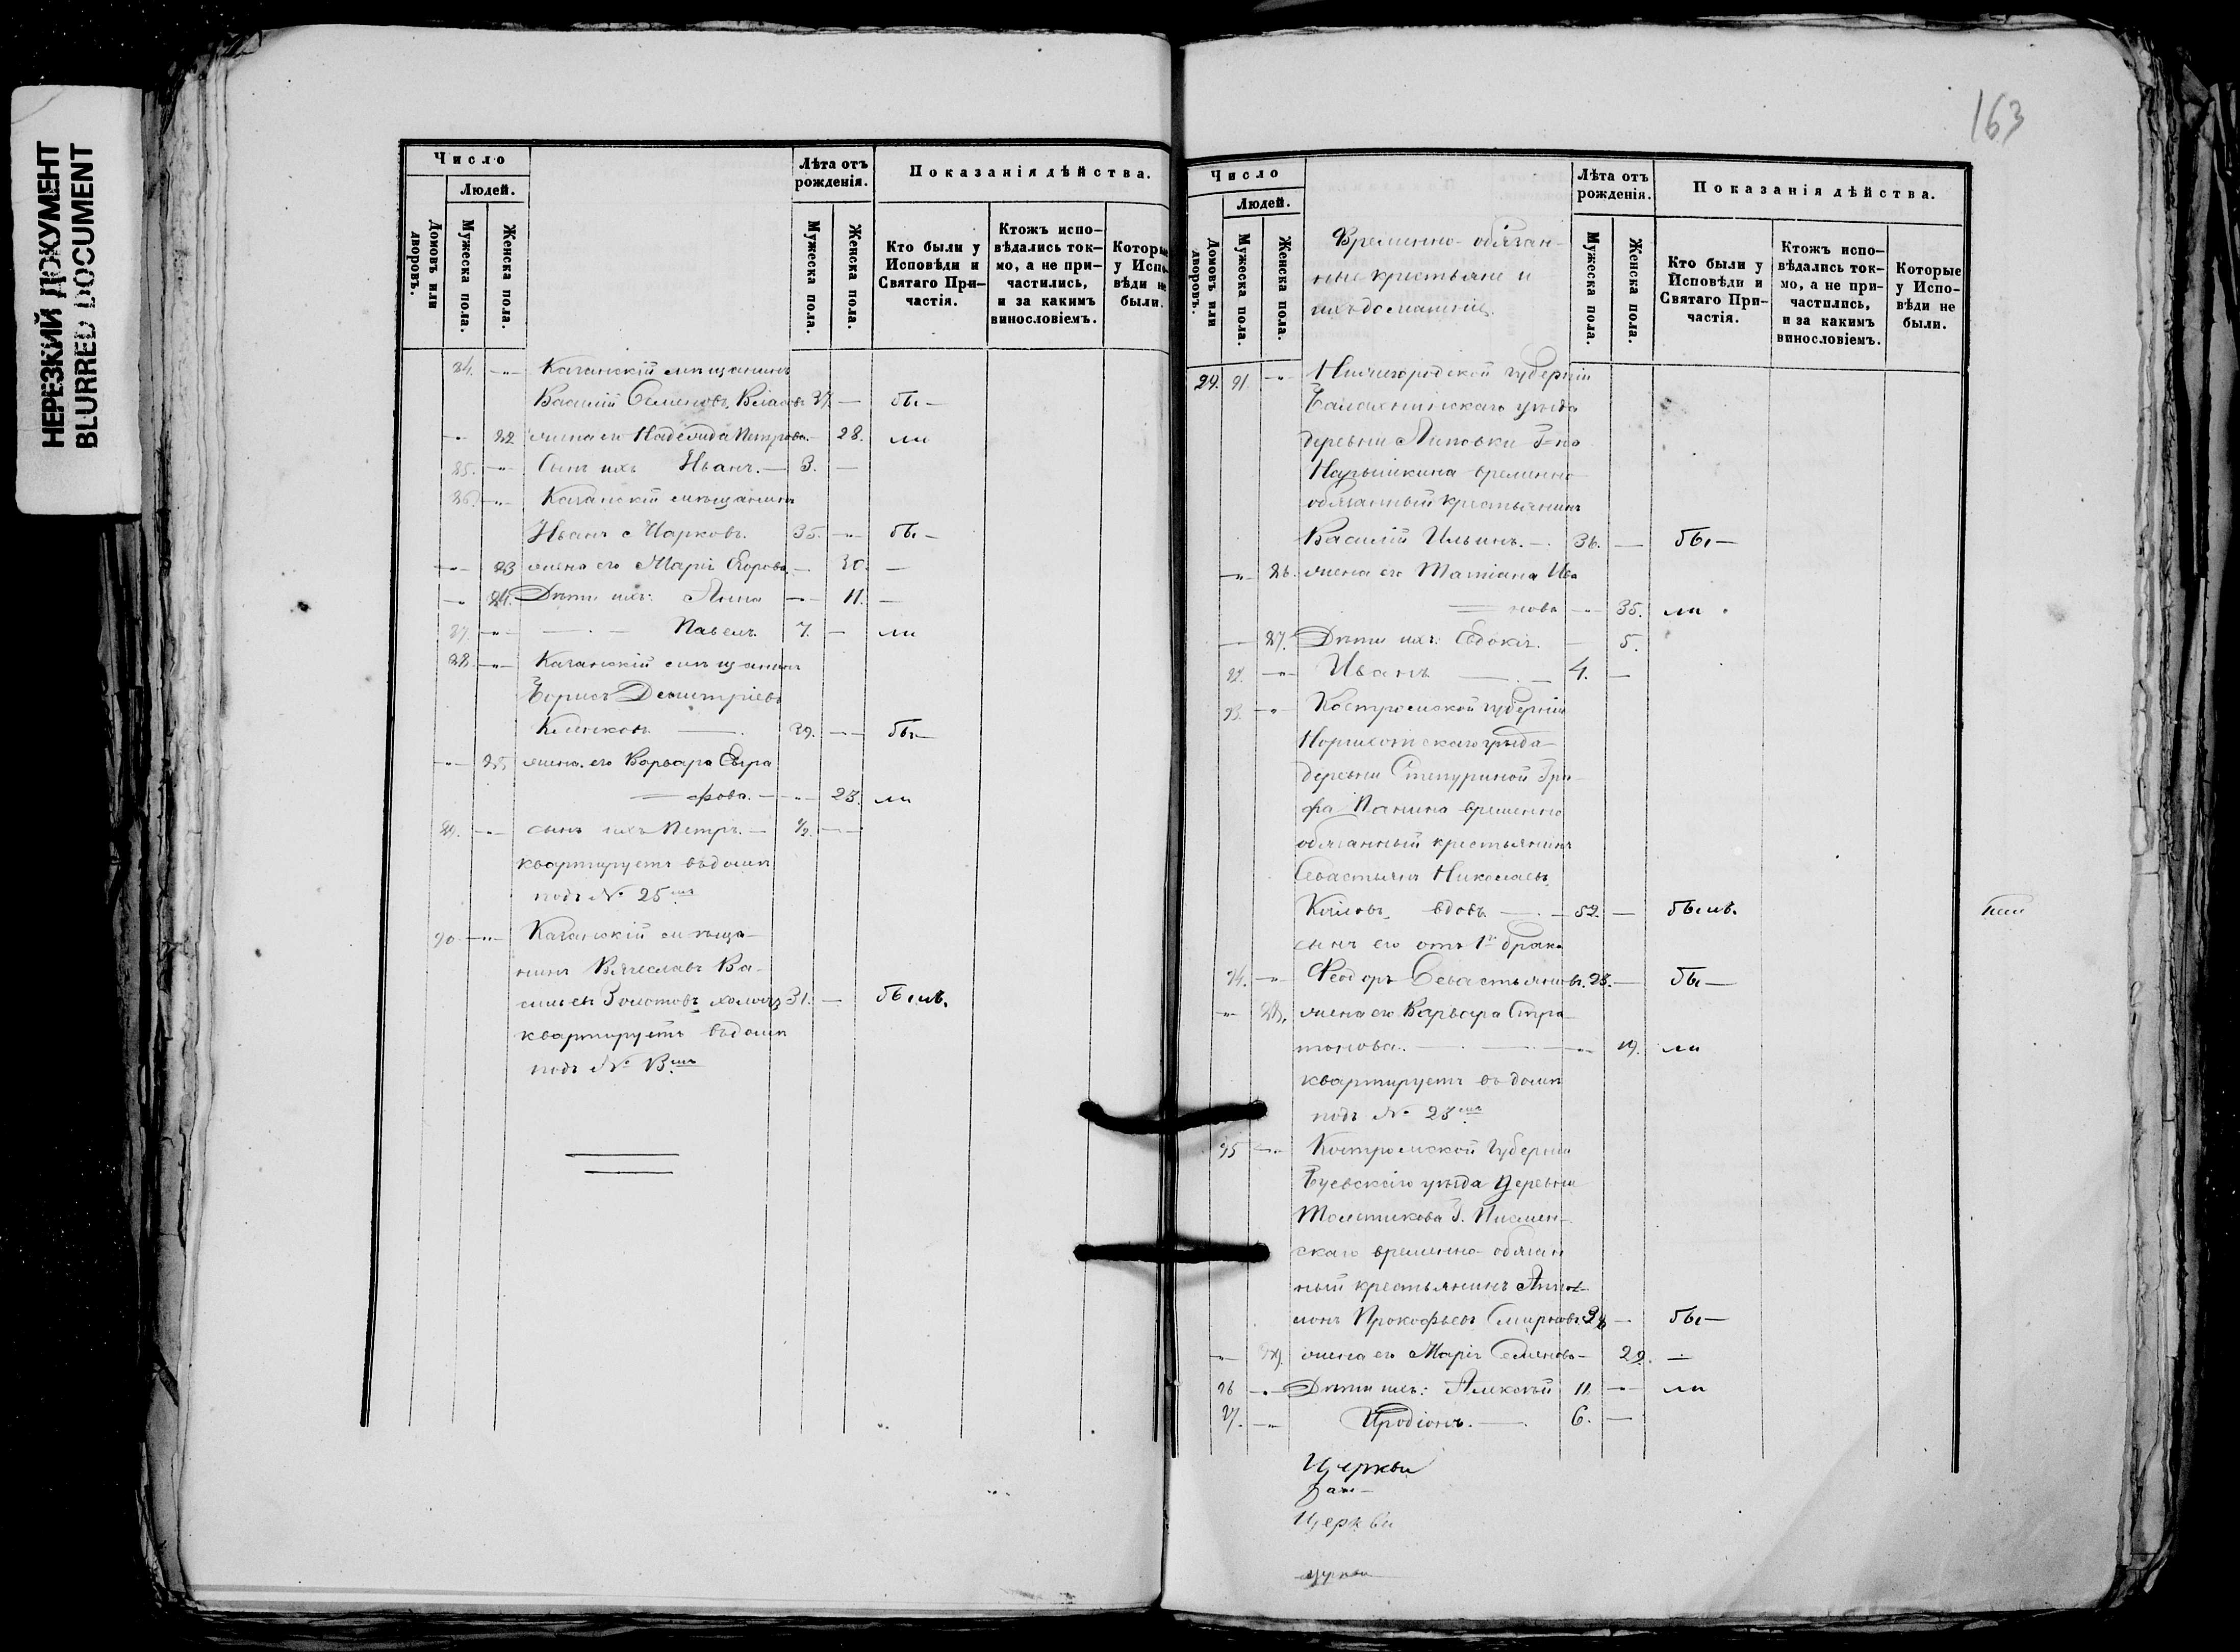 НЕРЕЗКИЙ ДОКУМЕНТ
BLURRED DOCUMENT
Число
Людей.
Домовъ или дворовъ.
Мужеска пола.
Женска пола.
Лѣта отъ рожденія.
Мужеска пола.
Женска пола.
Показанія дѣйства.
Кто были у Исповѣди и Святаго Причастія.
Ктожъ исповѣдались токмо, а не причастились, и за какимъ винословіемъ.
Которые у Исповѣди не были.
84. -"- Казанскій мѣщанинъ
Василій Семеновъ Власовъ 37. — бы —
-"- 22 жена его Надежда Петрова — 28. ли
85. -"- Сынъ ихъ Иванъ. — 3. —
86. -"- Казанскій мѣщанинъ
Иванъ Марковъ. 35. -"- бы —
-"- 23 жена его Марія Егорова — 30. —
-"- 24. Дѣти ихъ: Анна -"- 11. —
87. -"- Павелъ. 7. — ли
88. -"- Казанскій мѣщанинъ
Борисъ Димитріевъ
39. -"- бы —
-"- 25 жена его Варвара Евгра
фова. — -"- 23. ли
89. -"- сынъ ихъ Петръ. — 1/2. -"-
квартируетъ въ домѣ
подъ № 25мъ
90 -"- Казанскій мѣща-
нинъ Вячеславъ Ва-
сильевъ Золотовъ холостъ 31. — былъ.
квартируетъ въ домѣ
подъ № 13.мъ
163
Число
Людей.
Домовъ или дворовъ.
Мужеска пола.
Женска пола.
Временно-обязан-
ные крестьяне и
ихъ домашніе.
Лѣта отъ рожденія.
Мужеска пола.
Женска пола.
Показанія дѣйства.
Кто были у Исповѣди и Святаго Причастія.
Ктожъ исповѣдались токмо, а не причастились, и за какимъ винословіемъ.
Которые у Исповѣди не были.
29. 91. -"- Нижегородской губерніи
Балахнинскаго уѣзда
деревни Липовки Г-на
Нарышкина временно-
обязанный крестьянинъ
Василій Ильинъ. — 36. — бы —
-"- 26. жена его Татіана Ива
нова -"- 35. ли
— 27. Дѣти ихъ: Евдокія. — 5.
92. -"- Иванъ — 4. —
93. -"- Костромской губерніи
уѣзда
деревни Степуриной Гра-
фа Панина временно
обязанный крестьянинъ
Севастьянъ Николаевъ
вдовъ. — 52. — былъ.
сынъ его отъ 1го брака
94. -"- Ѳеодоръ Севастьяновъ. 23. — бы —
-"- 28. жена его Варвара Стра-
тонова. — -"- 19. ли
квартируетъ въ домѣ
подъ № 23мъ
95 -"- Костромской губерніи
Буевскаго уѣзда деревни
Толстикова Г.
скаго временно-обязан
ный крестьянинъ
Прокофьевъ Смирновъ — бы —
-"- 29. жена его Марія Семенова — 29. —
96 -"- Дѣти ихъ: Алексѣй 11. -"- ли
97. -"- Иродіонъ. — 6. —
Церкви
Церкви